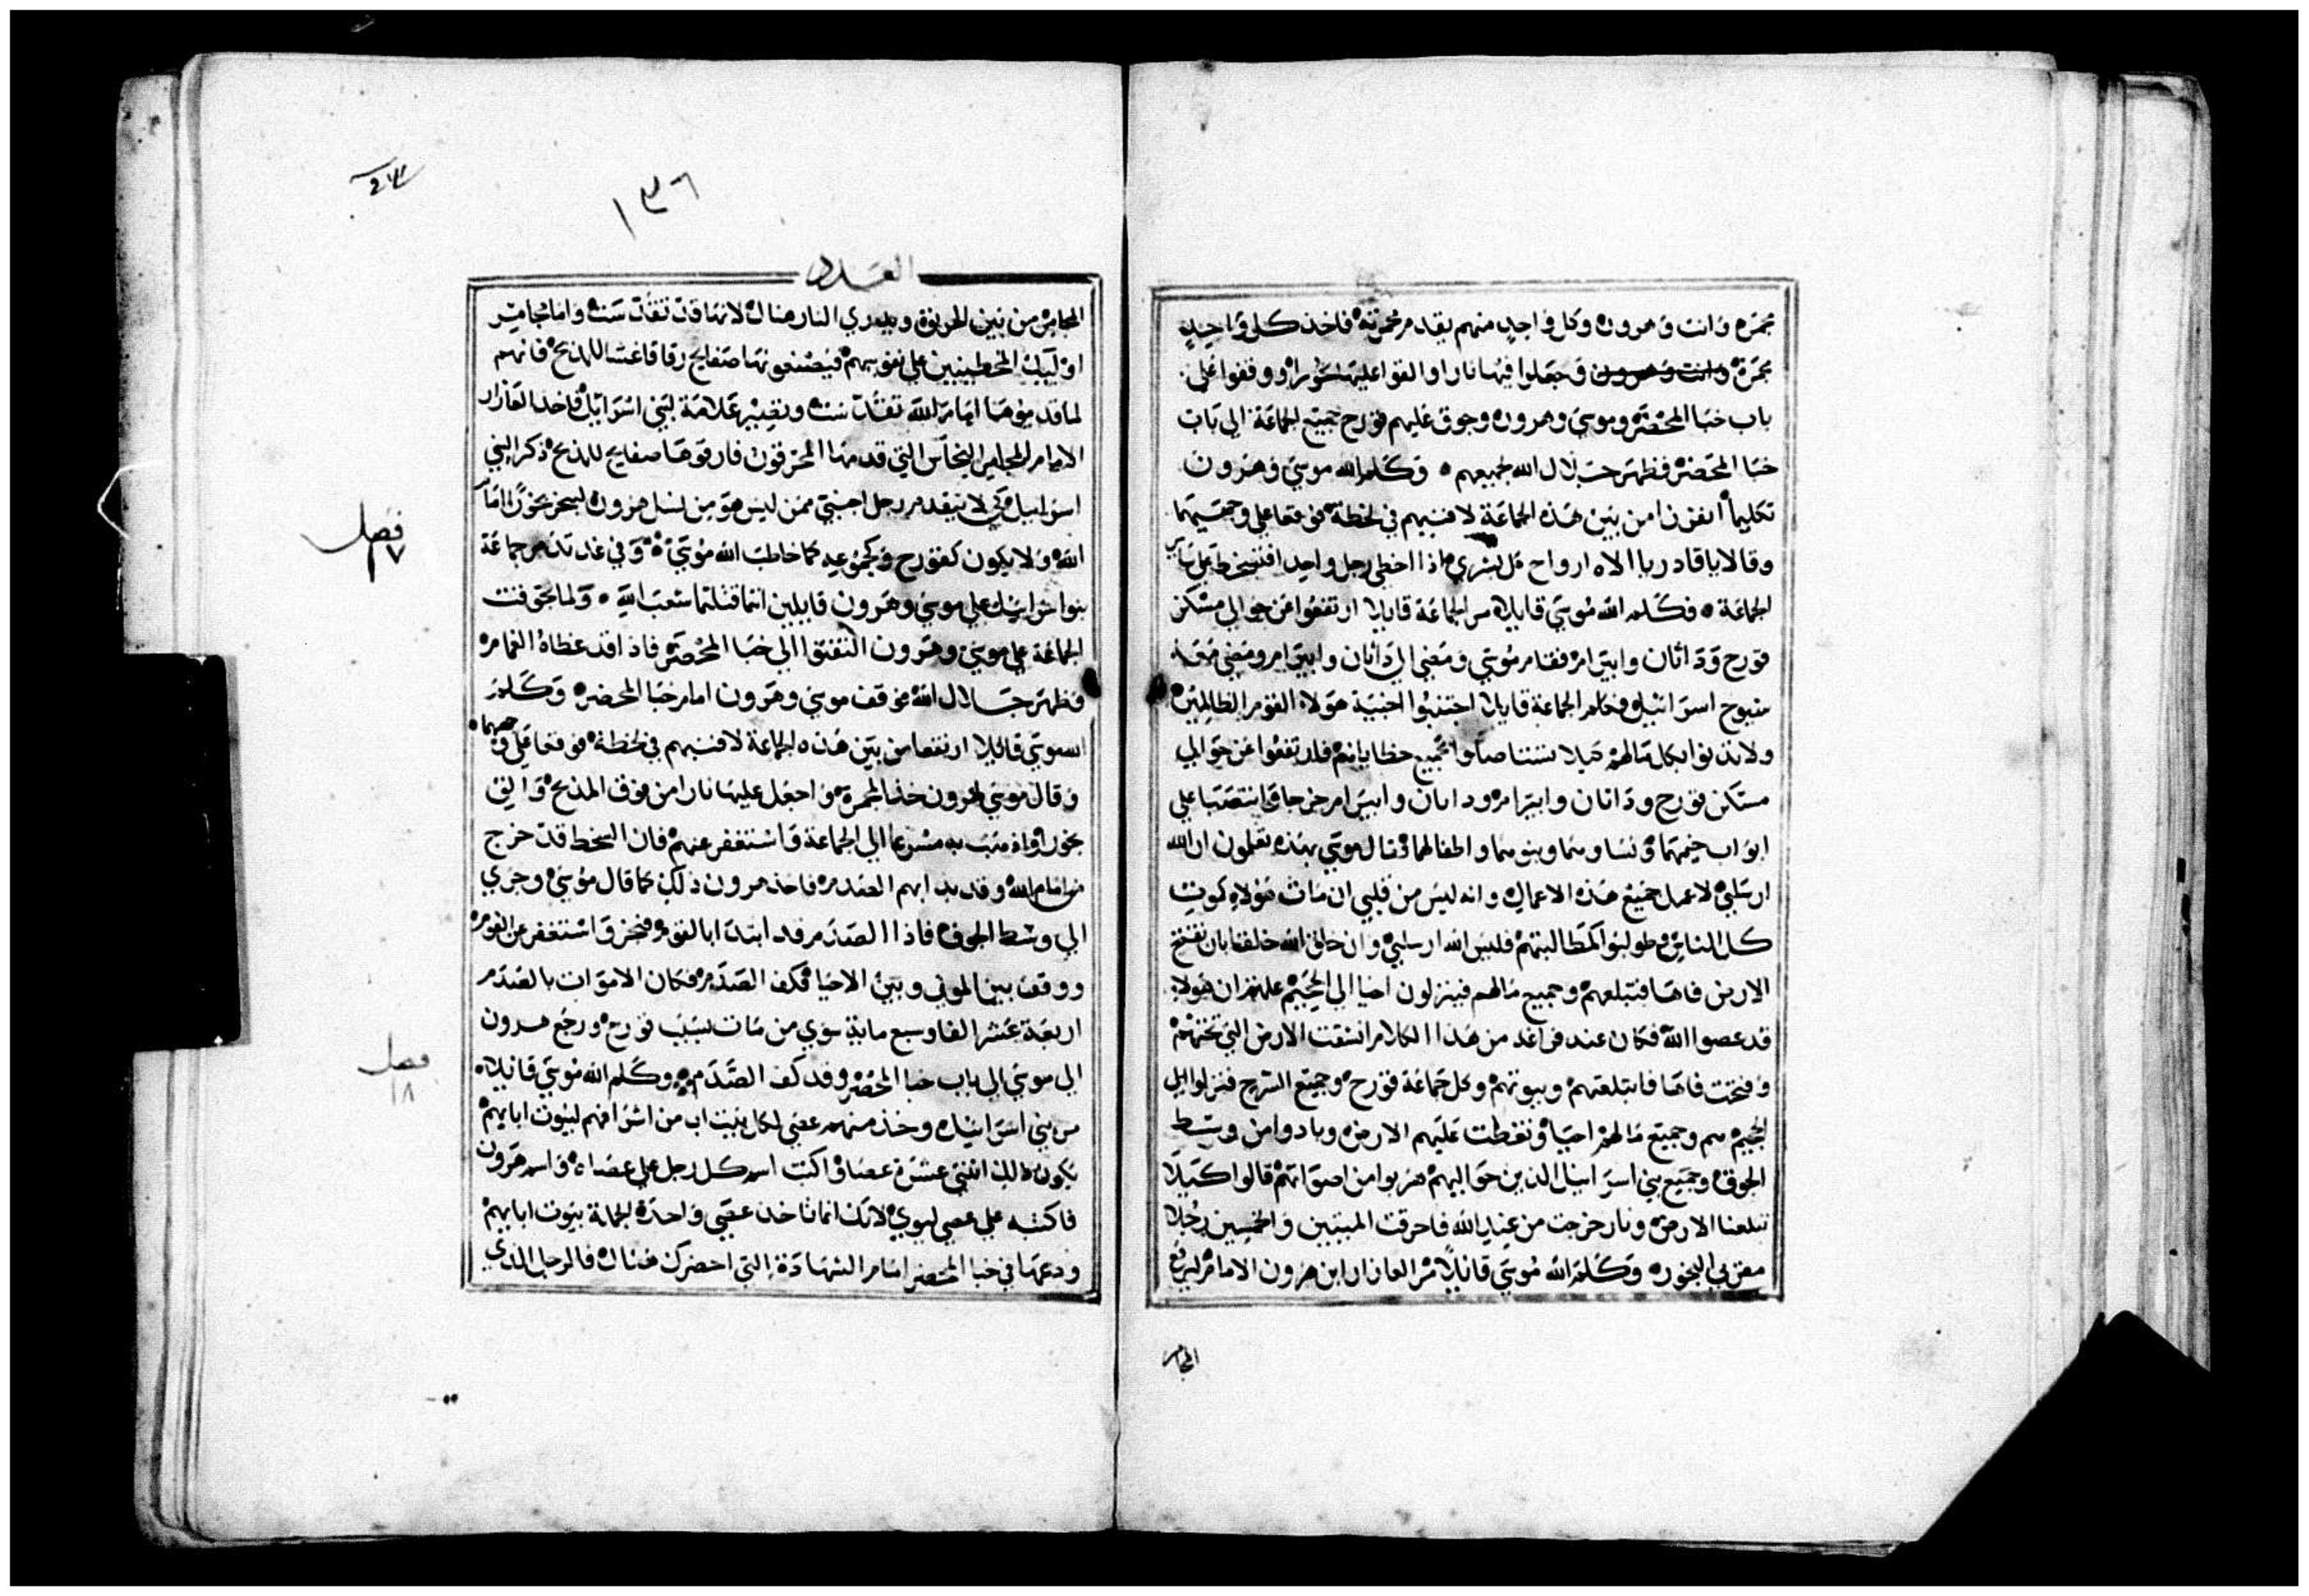 مجمره وانت وهرون وكل واحد منهم يقدم مجمرته فاخذ كل واحد
مجمرة وانت وهرون وجعلوا فيها نارا والقوا عليها بخورا ووقفوا على
باب خبا المحضر وموسي وهرون وجوق عليهم قورح جميع الجماعة الي باب
خبا المحضر فظهر جلال الله لجميعهم وكلم الله موسي وهرون
تكليما انفرزا من بين هذه الجماعة لافنيهم في لحظة فوقعا علي وجهيهما
وقالا يا قادر يا الاه ارواح كل بشري اذا اخطي رجل واحد افتسخط علي
الجماعة فكلم الله موسي قايلا مر الجماعة قايلا ارتفعوا من حوالي مسكن
قورح وداثان وابيرام فقام موسي ومضي الي داثان وابيرام ومضي معه
شيوخ اسرائيل فكلم الجماعة قايلا اجتنبوا اخبية هولاء القوم الظالمين
ولا تدنوا بكل مالهم كيلا تستاصلوا بجميع خطاياهم فارتفعوا من حوالي
مسكن قورح وداثان وابيرام وداثان وابيرام خرجا وانتصبا علي
ابواب خيمهما ونساوهما وبنوهما واطفالهما فقال موسي بهذه تعلمون ان الله
ارسلني لاعمل جميع هذه الاعمال وانه ليس من قلبي ان مات هولاء كموت
كل الناس وطولبوا كمطالبتهم فليس الله ارسلني وان خلق الله خلقا بان تفتح
الارض فاها فتبلعهم وجميع مالهم فينزلون احيا الي الجحيم علمتم ان هولا
قد عصوا الله فكان عند فراغه من هذا الكلام انشقت الارض التي تحتهم
وفتحت فاها فابتلعتهم وبيوتهم وكل جماعة قورح وجميع السرح فنزلوا الي
الجحيم هم وجميع مالهم احيا وتغطت عليهم الارض وبادوا من وسط
الجوق وجميع بني اسراييل الذين حواليهم هربوا من اصواتهم قالوا كيلا
تبلعنا الارض ونار خرجت من عند الله فاحرقت الميتين والخمسين رجلا
مقربي البخور وكلم الله موسي قايلا مر العازار ابن هرون الامام ليرفع
المجامر
١٣٦
العدد
المجامر من بين الحريق ويدري النار هناك لانها قد تقدست واما مجامر
اوليك المخطيين علي نفوسهم فيصنعونها صفايح رقاقا غشا للمذبح فانهم
لما قدموها امام الله تقدست وتصير علامة لبني اسرائيل فاخذ العازار
الامام المجامر النحاس التي قدمها المحرقون فارقوها صفايح للمذبح ذكرا لبني
اسراييل لكي لا يتقدم رجل اجنبي ممن ليس هو من نسل هرون ليبخر بخورا امام
الله ولا يكون كقورح وكجموعه كما خاطب الله موسي وفي غد تذمر جماعة
بنوا اسراييل علي موسي وهرون قايلين انتما قتلتما شعب الله ولما تجوقت
الجماعة علي موسي وهرون التفتوا الي خبا المحضر فاذا قد غطاه الغمام
فظهر جلال الله فوقف موسي وهرون امام خبا المحضر وكلم
الله موسي قائلا ارتفعا من بين هذه الجماعة لافنيهم في لحظة فوقعا علي وجهيهما
وقال موسي لهرون خذ المجمرة واجعل عليها نارا من فوق المذبح والق
بخورا واذهب به مسرعا الي الجماعة واستغفر عنهم فان السخط قد خرج
من امام الله وقد بدا بهم الصدم فاخذ هرون ذلك كما قال موسي وجري
الي وسط الجوق فاذا الصدم قد ابتدا بالقوم فبخر واستغفر عن القوم
ووقف بين الموتي وبين الاحيا فكف الصدم فكان الاموات بالصدم
اربعة عشر الفا وسبع ماية سوي من مات بسبب قورح ورجع هرون
الي موسي الي باب خبا المحضر وقد كف الصدم وكلم الله موسي قائلا
مر بني اسراييل وخذ منهم عصي لكل بيت اب من اشرافهم لبيوت ابايهم
يكون ذلك اثنتي عشرة عصا واكتب اسم كل رجل علي عصاه واسم هرون
فاكتبه علي عصي ليوي لانك انما تاخذ عصي واحدة لجملة بيوت ابايهم
ودعها في خبا المحضر امام الشهادة التي احضرك هناك فالرجل الذي
فصل
١٧
فصل
١٨